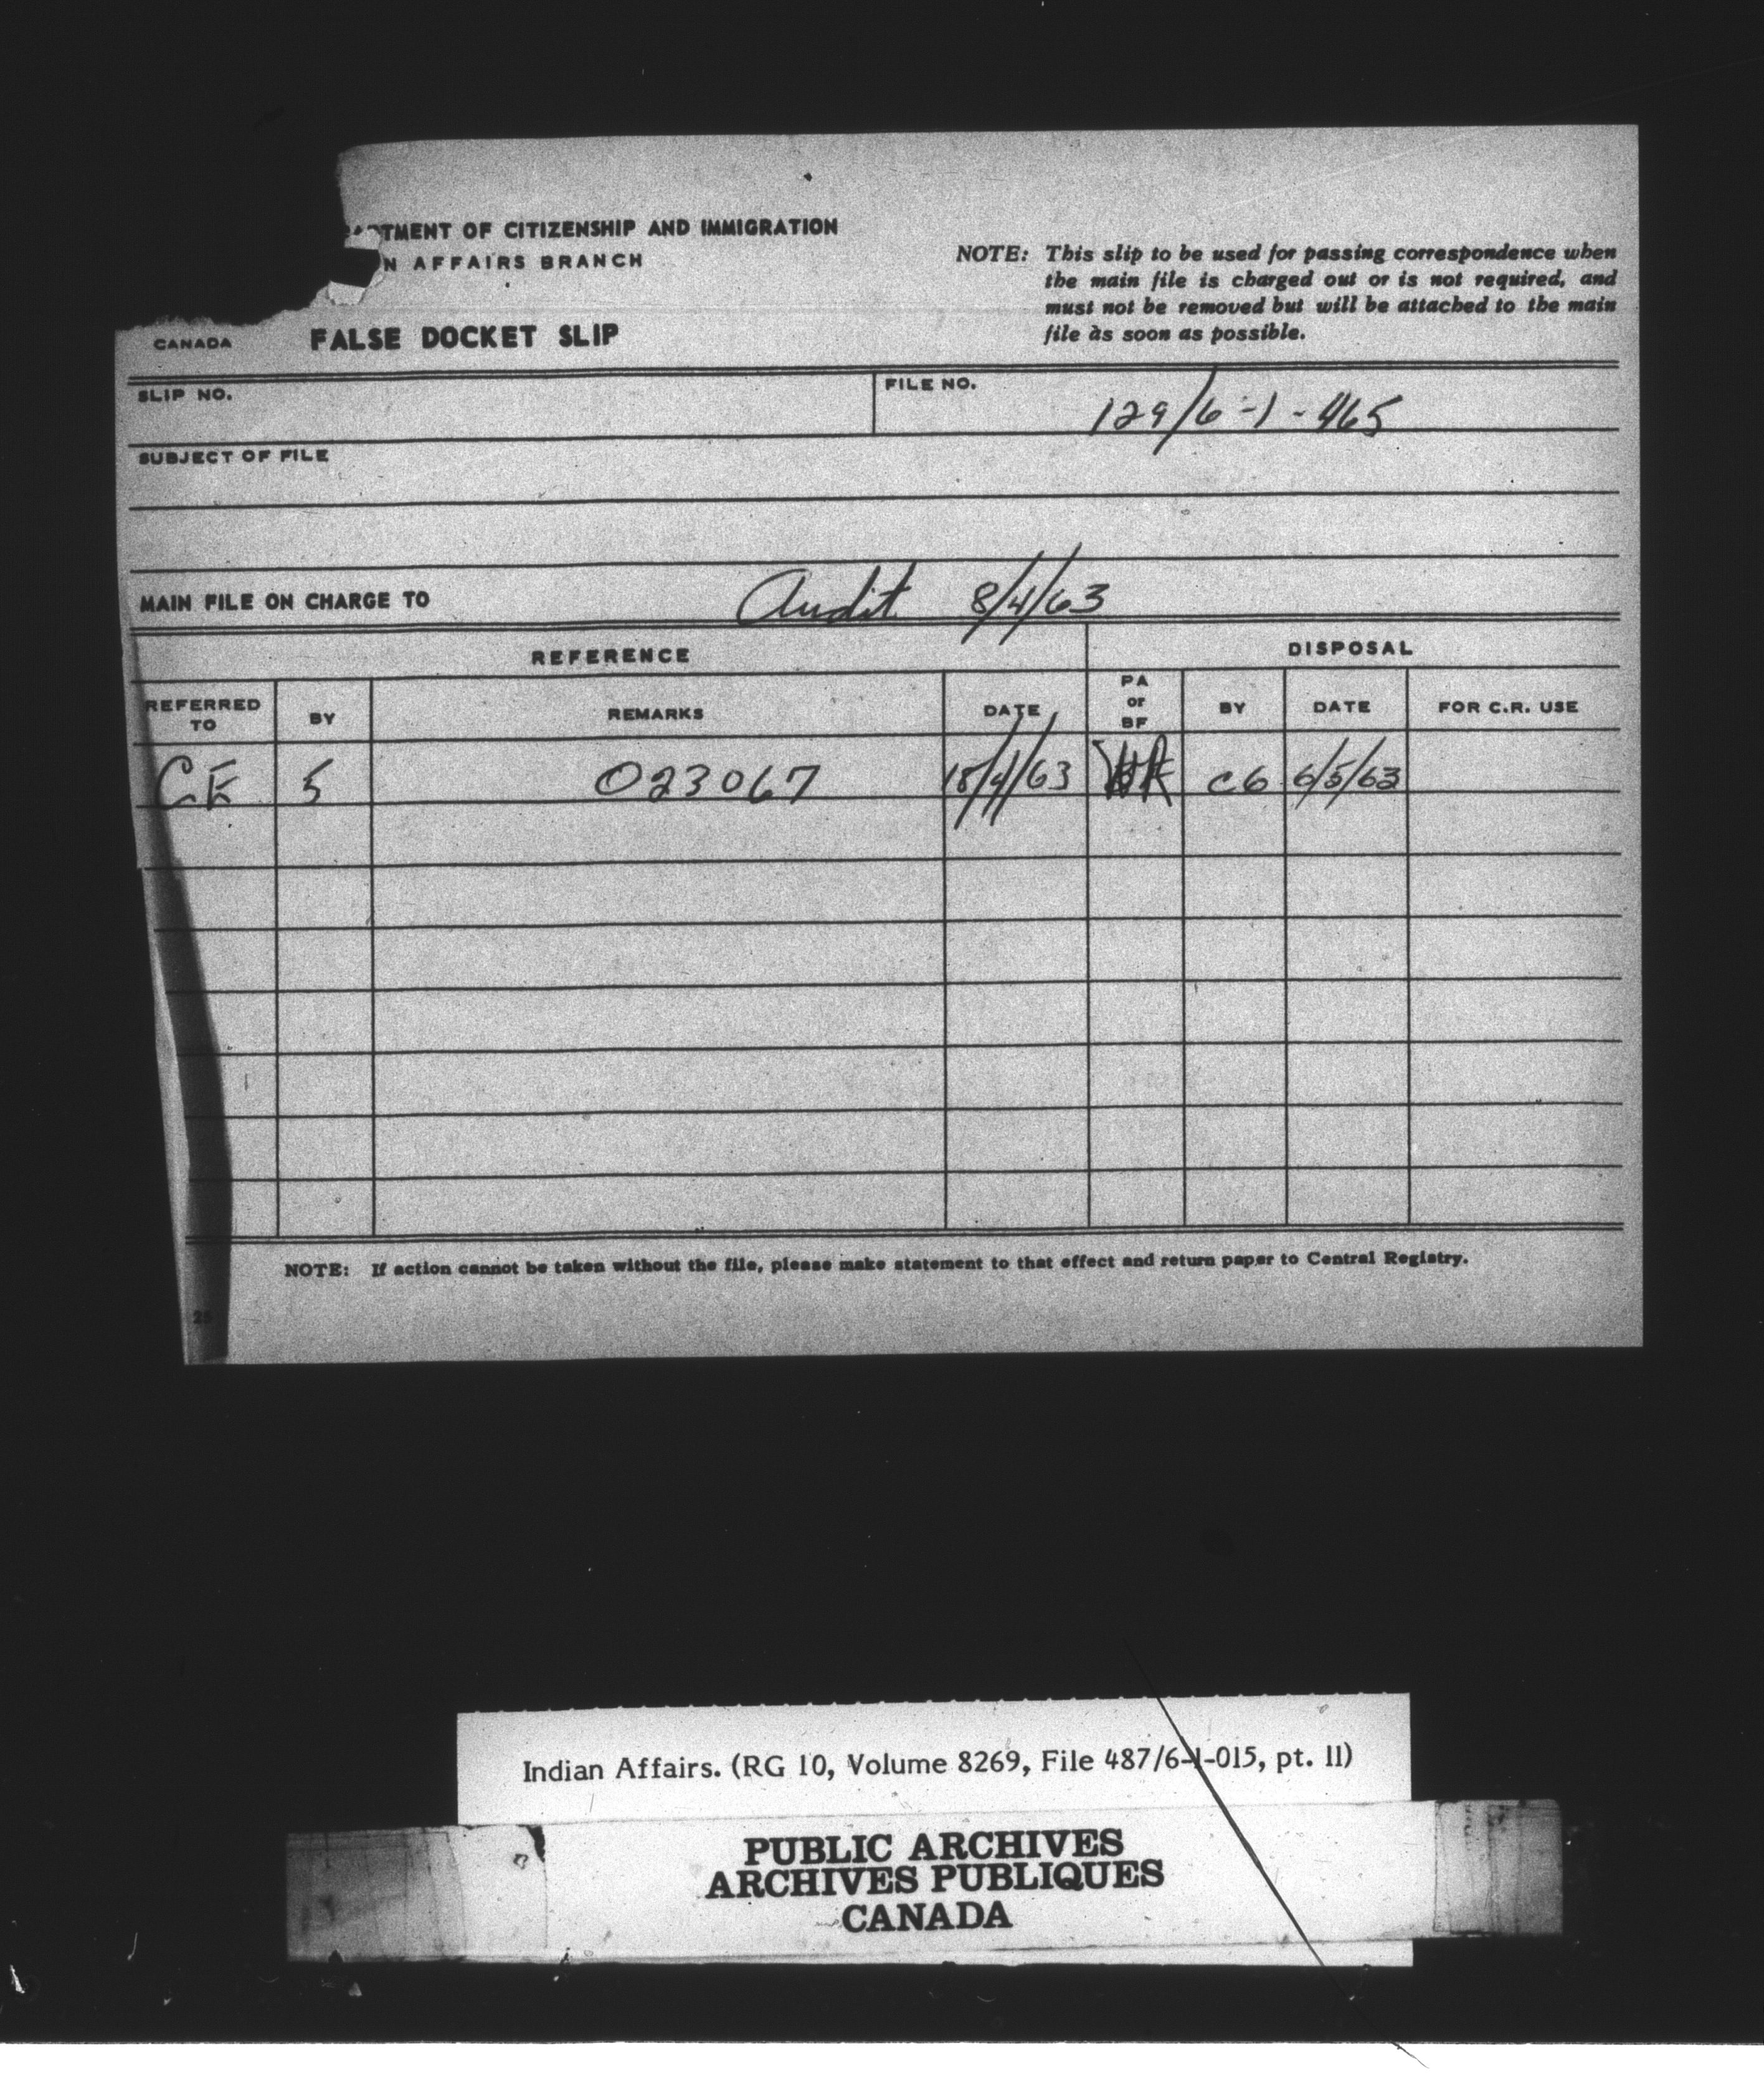 TMENT OF CITIZENSHIP AND IMMIGRATION
N AFFAIRS BRANCH
NOTE: This slip to be used for passing correspondence when
the main file is charged out or is not required, and
must not be removed but will be attached to the main
file as soon as possible.
CANADA FALSE DOCKET SLIP
SLIP NO. FILE NO. 129/6-1-465
SUBJECT OF FILE
MAIN FILE ON CHARGE TO Audit 8/4/63
REFERENCE DISPOSAL
REFERRED TO BY REMARKS DATE PA or BF BY DATE FOR C.R. USE
CE 5 023067 18/4/63 C6 6/5/63
NOTE: If action cannot be taken without the file, please make statement to that effect and return paper to Central Registry.
25
Indian Affairs. (RG 10, Volume 8269, File 487/6-1-015, pt. 11)
PUBLIC ARCHIVES
ARCHIVES PUBLIQUES
CANADA